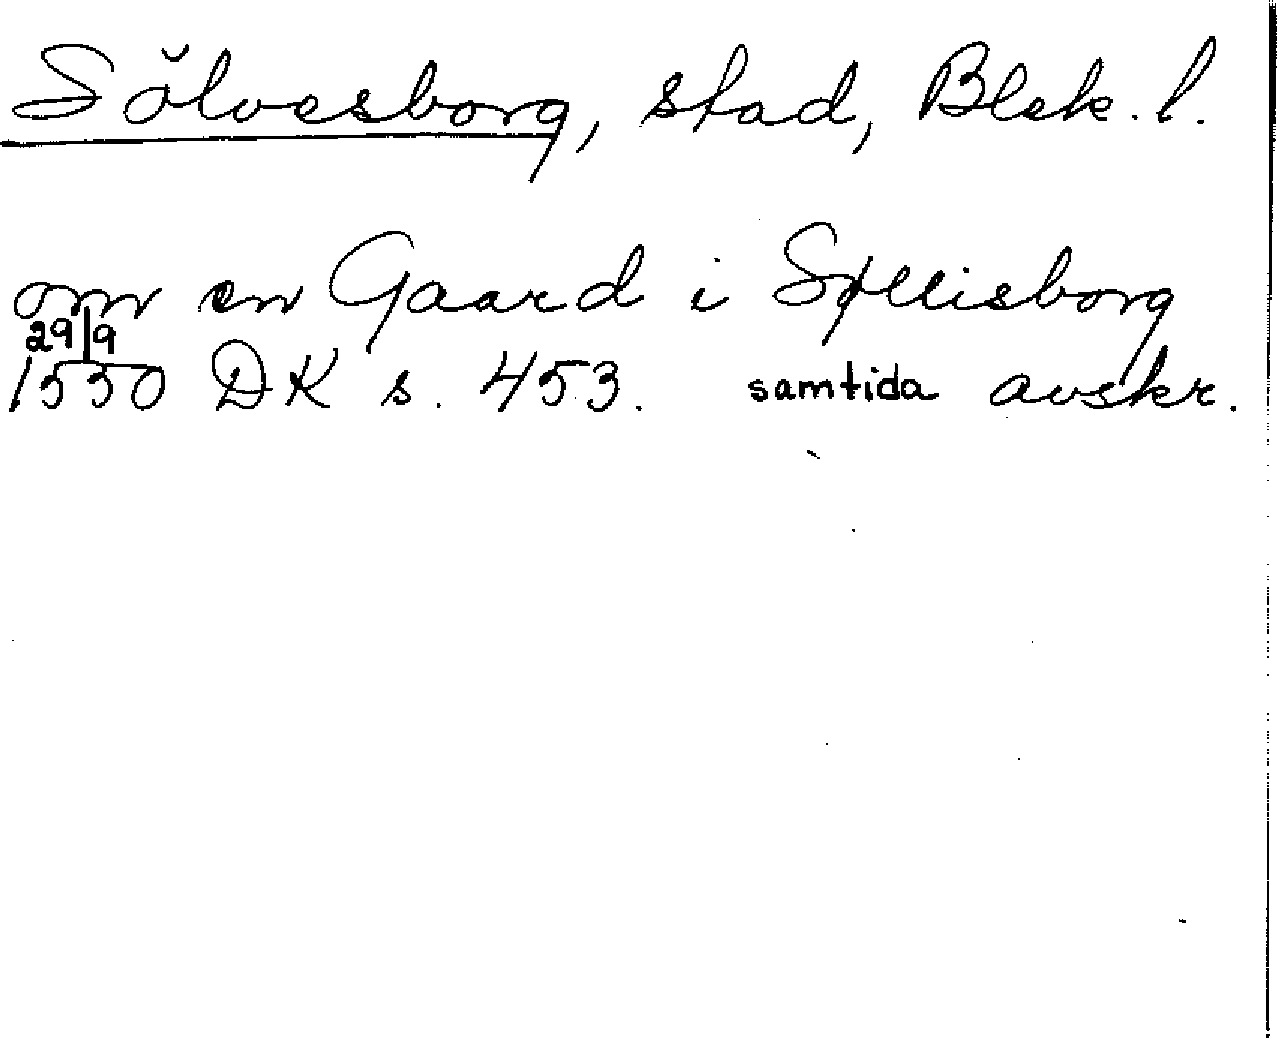 Sölvesborg, stad, Blek. l.
om en Gaard i Søllisborg
29/9
1550 DK s. 453. samtida avskr.